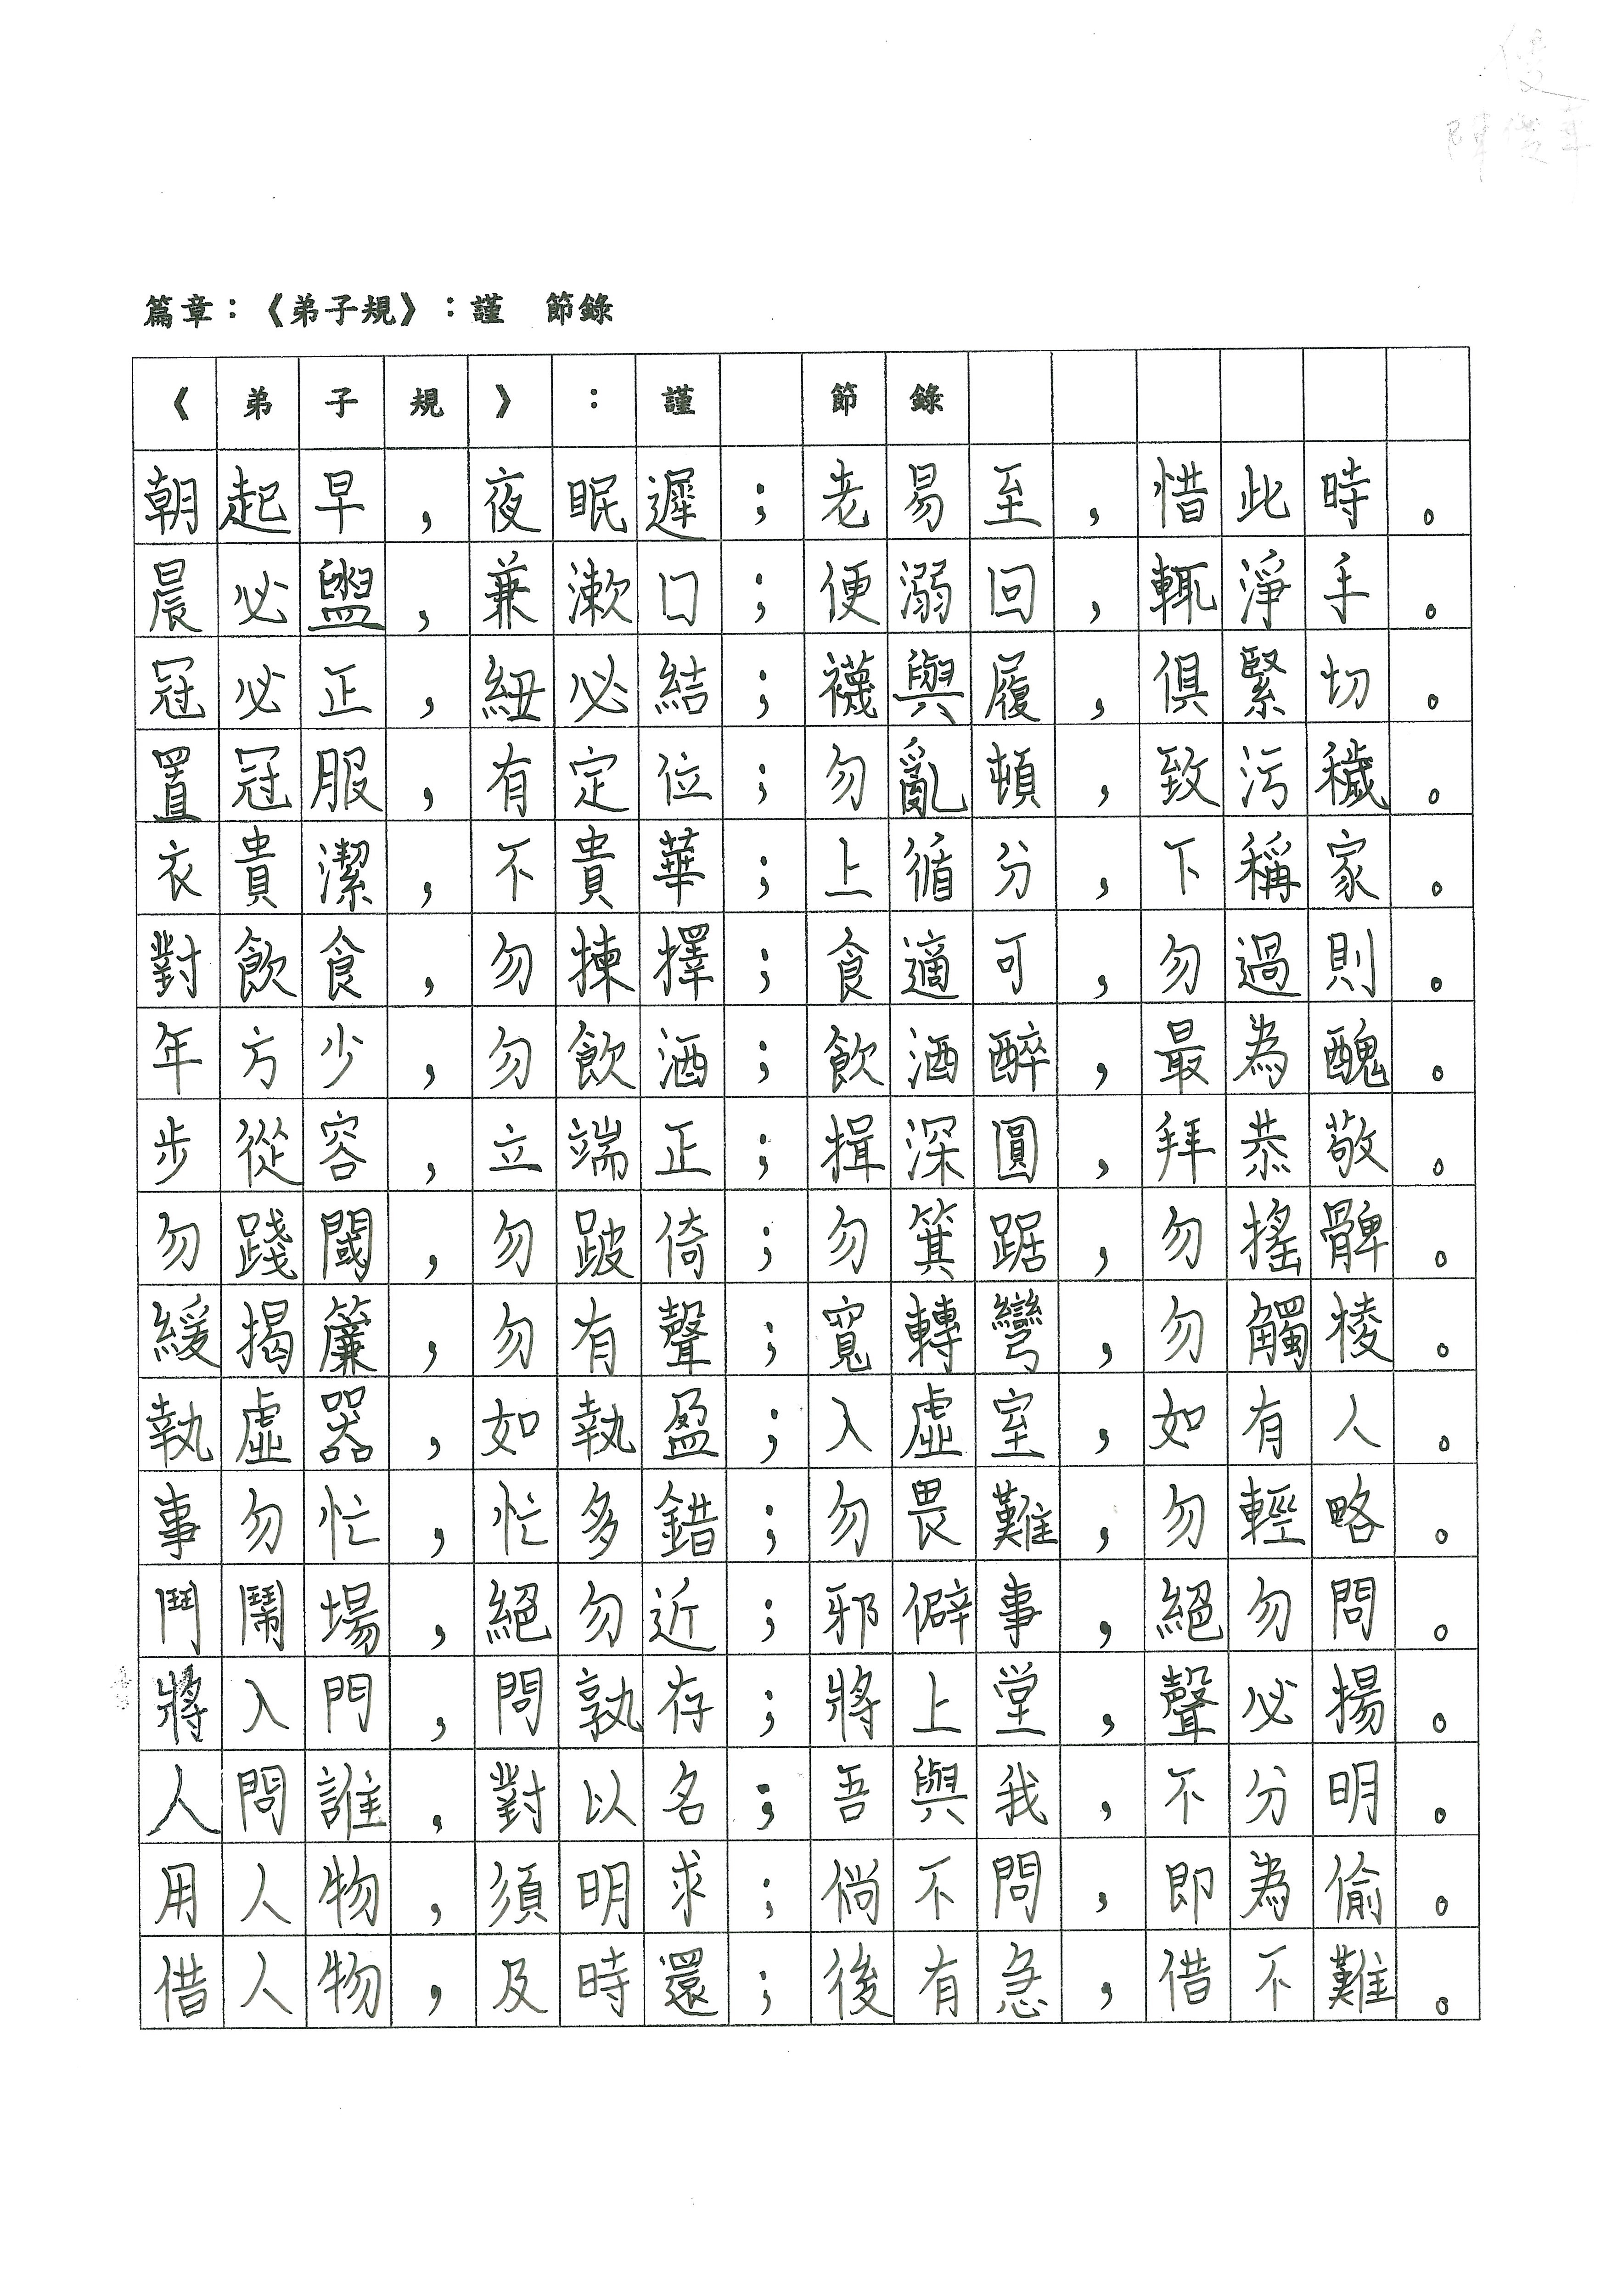 篇章：《弟子規》：謹　節錄
《弟子規》：謹　節錄
朝起早，夜眠遲；老易至，惜此時。
晨必盥，兼漱口；便溺回，輒淨手。
冠必正，紐必結；襪與履，俱緊切。
置冠服，有定位；勿亂頓，致污穢。
衣貴潔，不貴華；上循分，下稱家。
對飲食，勿揀擇；食適可，勿過則。
年方少，勿飲酒；飲酒醉，最為醜。
步從容，立端正；揖深圓，拜恭敬。
勿踐閾，勿跛倚；勿箕踞，勿搖髀。
緩揭簾，勿有聲；寬轉彎，勿觸棱。
執虛器，如執盈；入虛室，如有人。
事勿忙，忙多錯；勿畏難，勿輕略。
鬥鬧場，絕勿近；邪僻事，絕勿問。
將入門，問孰存；將上堂，聲必揚。
人問誰，對以名；吾與我，不分明。
用人物，須明求；倘不問，即為偷。
借人物，及時還；後有急，借不難。